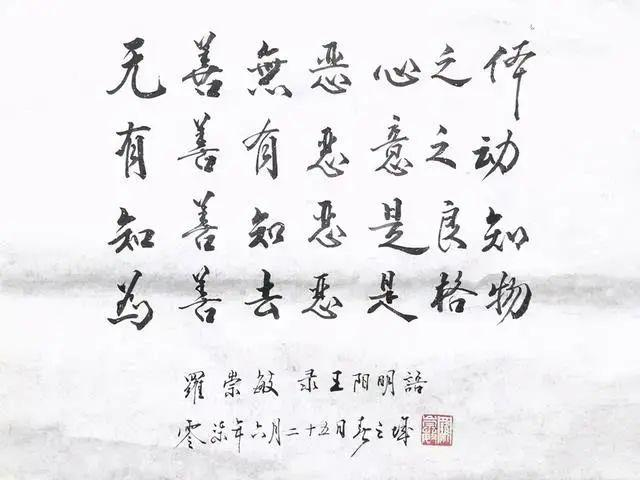 无善無恶心之体
有善有恶意之动
知善知恶是良知
为善去恶是格物
羅崇敏录王阳明語
零柒年六月二十五日春之城